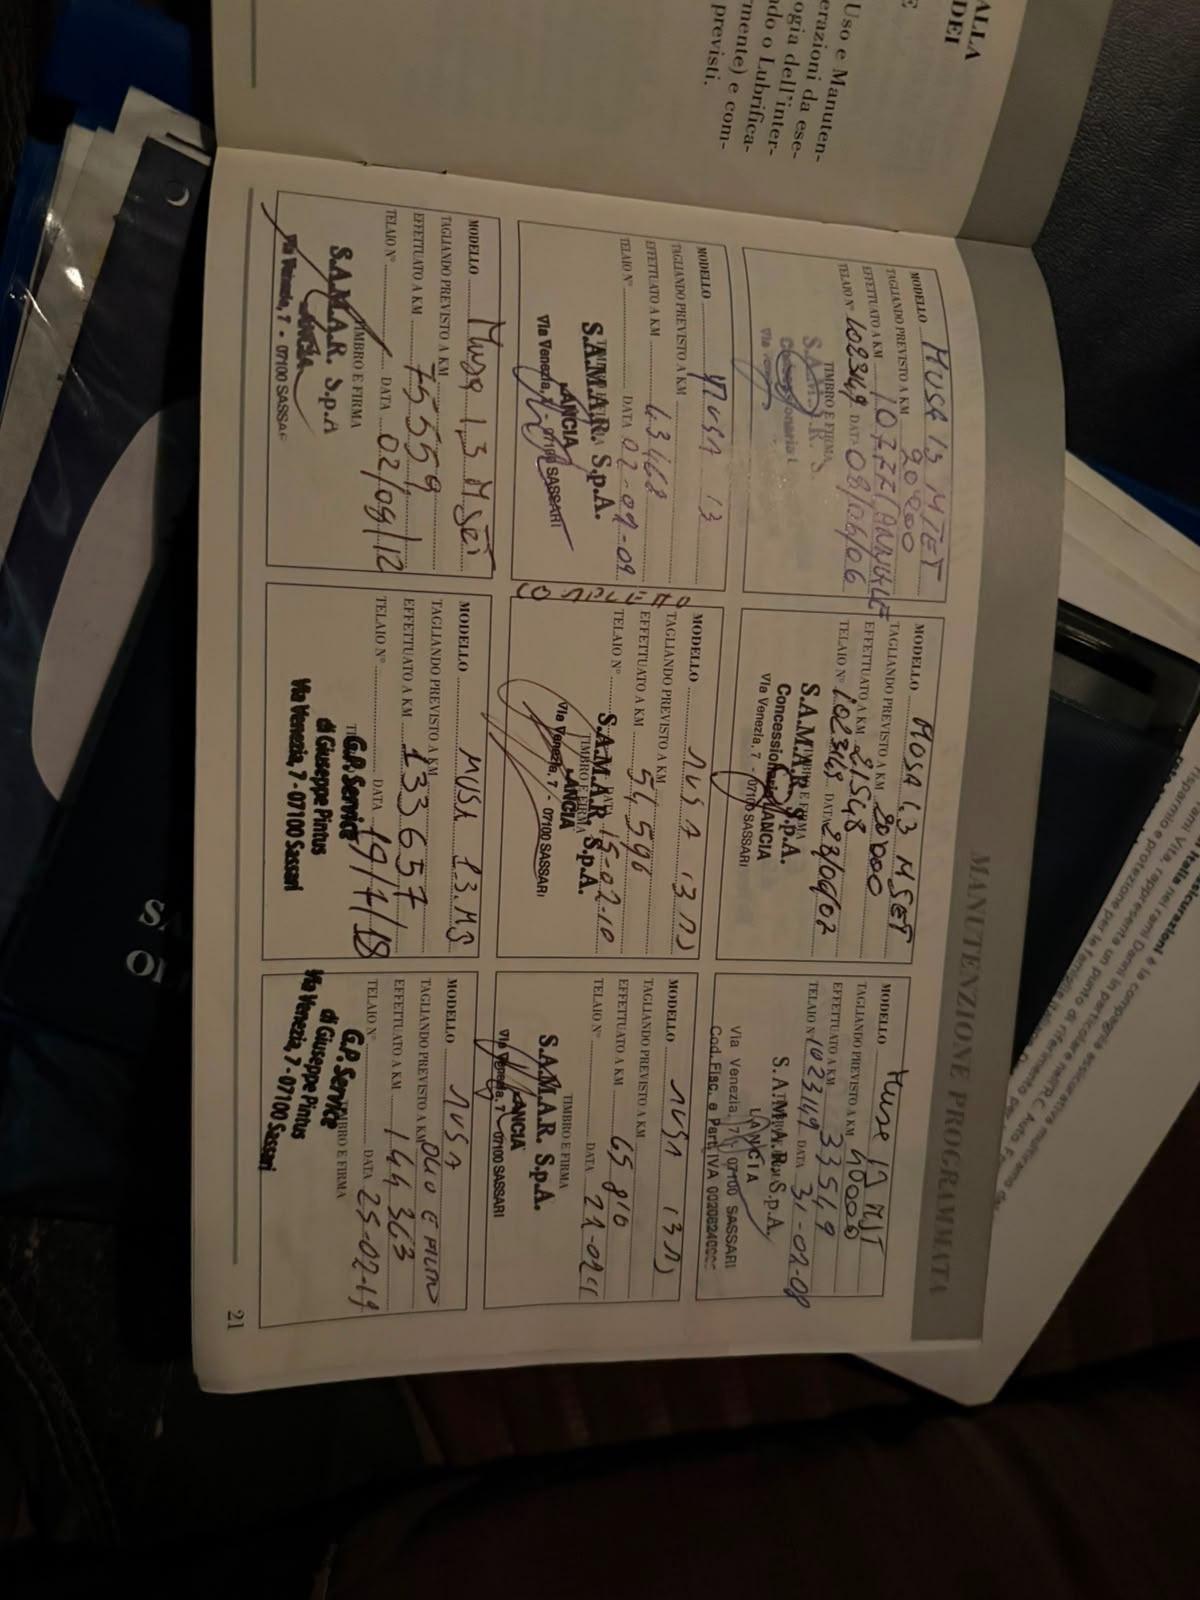 ALLA
DEI
E
Uso e Manuten-
erazioni da ese-
ogia dell'inter-
do o Lubrifica-
mente) e com-
previsti.
MANUTENZIONE PROGRAMMATA
MODELLO MUSA 1,3 MJET
TAGLIANDO PREVISTO A KM 20000
EFFETTUATO A KM 10777 ANNUALE
TELAIO N° 1023149 DATA 08/06/06
TIMBRO E FIRMA
S.A.M.A.R. S.
Concessionaria
Via Venezia
MODELLO MUSA 1,3 MJET
TAGLIANDO PREVISTO A KM 20000
EFFETTUATO A KM 21548
TELAIO N° 1023149 DATA
TIMBRO E FIRMA
S.A.M.A.R. S.p.A.
Concessionaria LANCIA
Via Venezia, 7 - 07100 SASSARI
MODELLO Musa MJT
TAGLIANDO PREVISTO A KM 40000
EFFETTUATO A KM 33549
TELAIO N° 1023149 DATA 31-02-08
TIMBRO E FIRMA
S.A.M.A.R. S.p.A.
LANCIA
Via Venezia, 7 07100 SASSARI
Cod. Fisc. e Part. IVA
MODELLO MUSA 13
TAGLIANDO PREVISTO A KM
EFFETTUATO A KM 43468
TELAIO N° DATA 02-09-09
S.A.M.A.R. S.p.A.
LANCIA
Via Venezia, 7 - 07100 SASSARI
COMPLETO
MODELLO MUSA 13
TAGLIANDO PREVISTO A KM
EFFETTUATO A KM 54596
TELAIO N° DATA 15-02-10
TIMBRO E FIRMA
S.A.M.A.R. S.p.A.
LANCIA
Via Venezia, 7 - 07100 SASSARI
MODELLO MUSA 13
TAGLIANDO PREVISTO A KM
EFFETTUATO A KM 65810
TELAIO N° DATA 21-02-11
TIMBRO E FIRMA
S.A.M.A.R. S.p.A.
LANCIA
Via Venezia, 7 - 07100 SASSARI
MODELLO Musa 1,3 MJet
TAGLIANDO PREVISTO A KM
EFFETTUATO A KM 75559
TELAIO N° DATA 02/09/12
TIMBRO E FIRMA
S.A.M.A.R. S.p.A
LANCIA
Via Venezia, 7 - 07100 SASSAR
MODELLO MUSA 1.3 MJ
TAGLIANDO PREVISTO A KM
EFFETTUATO A KM 133657
TELAIO N° DATA 19/7/18
G.P. Service
di Giuseppe Pintus
Via Venezia, 7 - 07100 Sassari
MODELLO MUSA
TAGLIANDO PREVISTO A KM OLIO E FILTRO
EFFETTUATO A KM 144363
TELAIO N° DATA 25-02-19
TIMBRO E FIRMA
G.P. Service
di Giuseppe Pintus
Via Venezia, 7 - 07100 Sassari
21